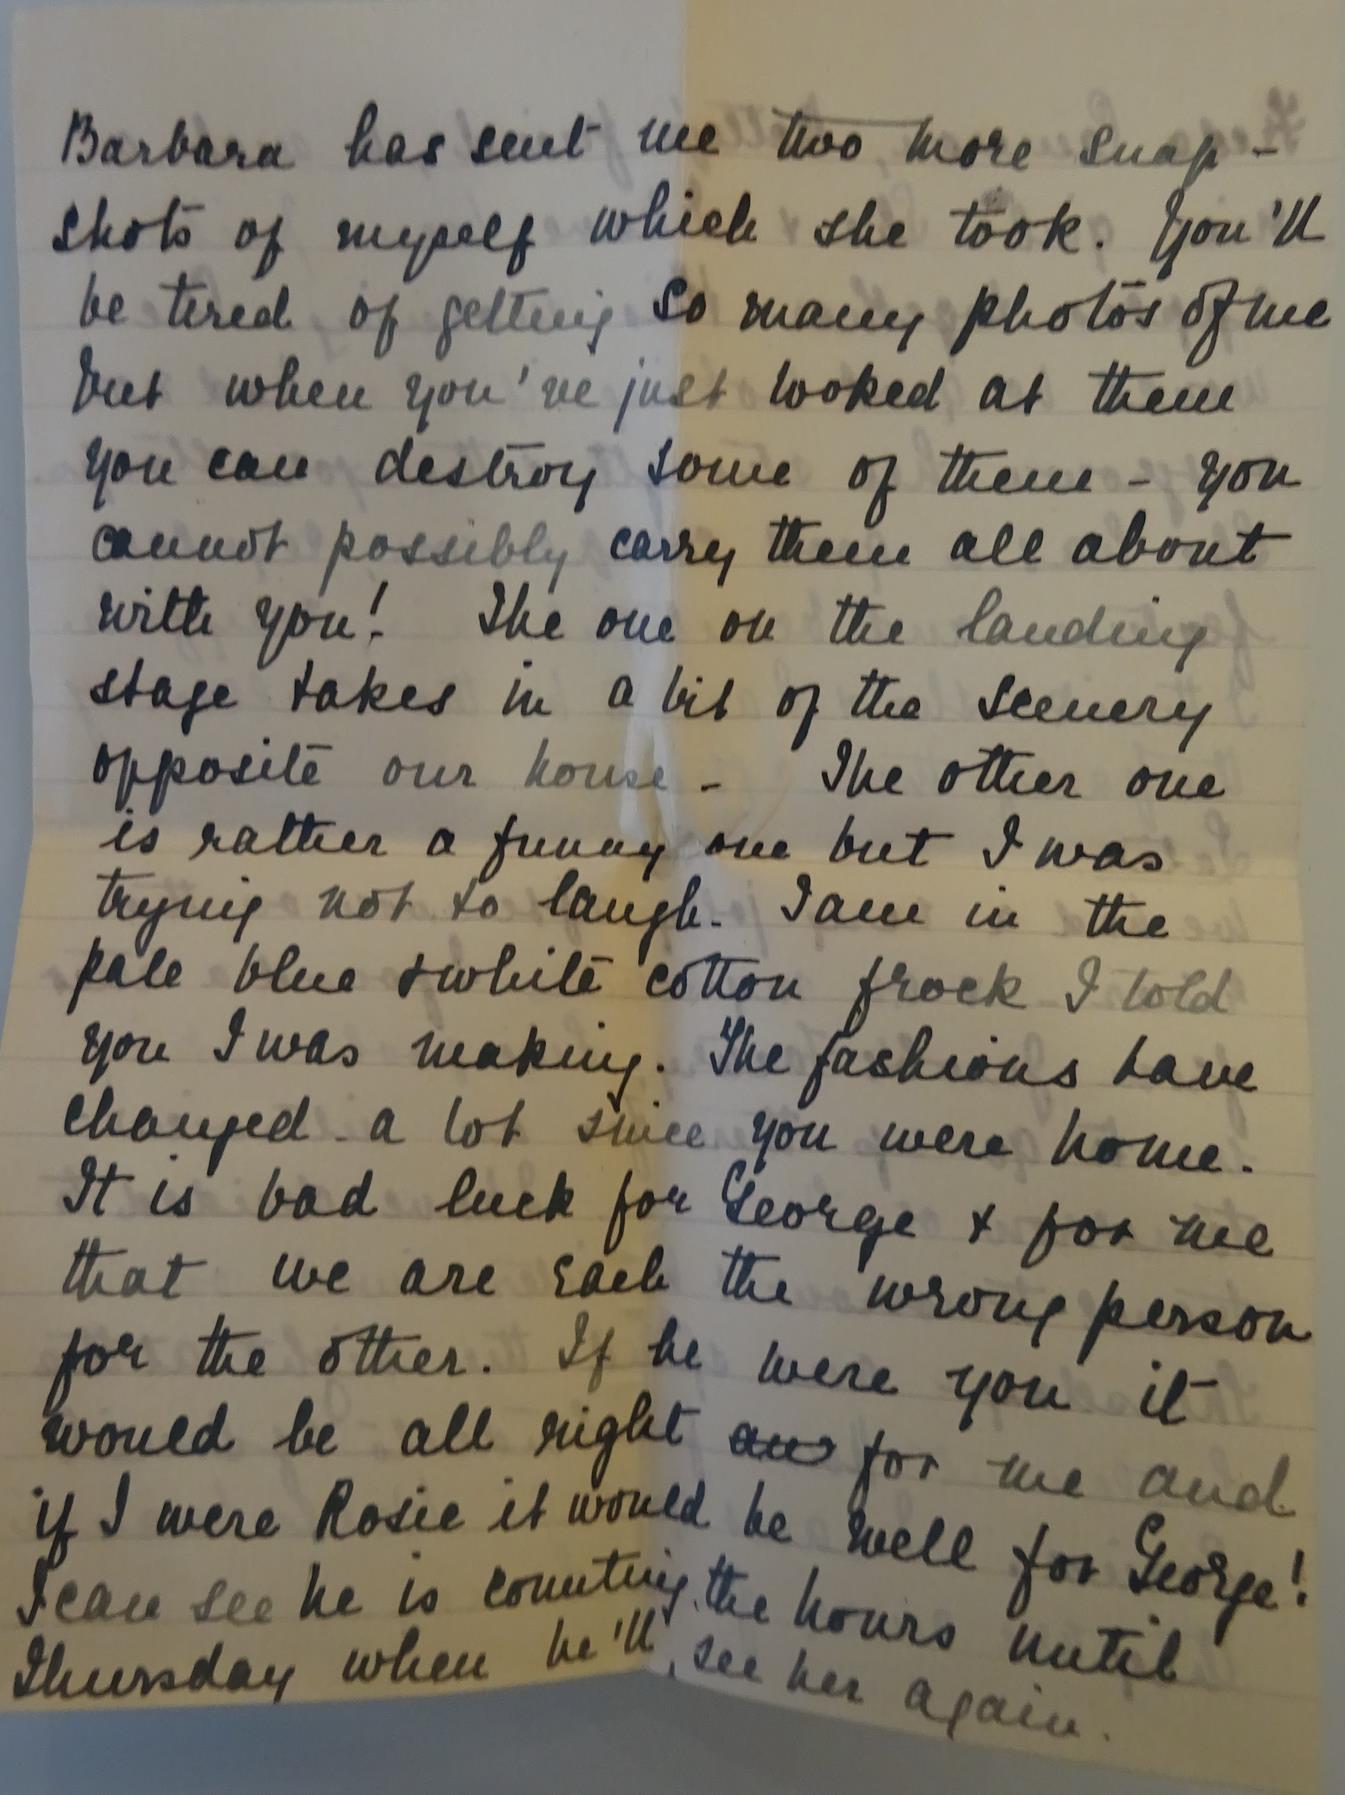 Barbara has sent me two more snap-
shots of myself which she took. You'll
be tired of getting so many photos of me
but when you've just looked at them
you can destroy some of them - you
cannot possibly carry them all about
with you! The one on the landing
stage takes in a bit of the scenery
opposite our house - The other one
is rather a funny one but I was
trying not to laugh. I am in the
pale blue & white cotton frock I told
you I was making. The fashions have
changed a lot since you were home.
It is bad luck for George & for me
that we are each the wrong person
for the other. If he were you it
would be all right for me and
if I were Rosie it would be well for George!
I can see he is counting the hours until
Thursday when he'll see her again.